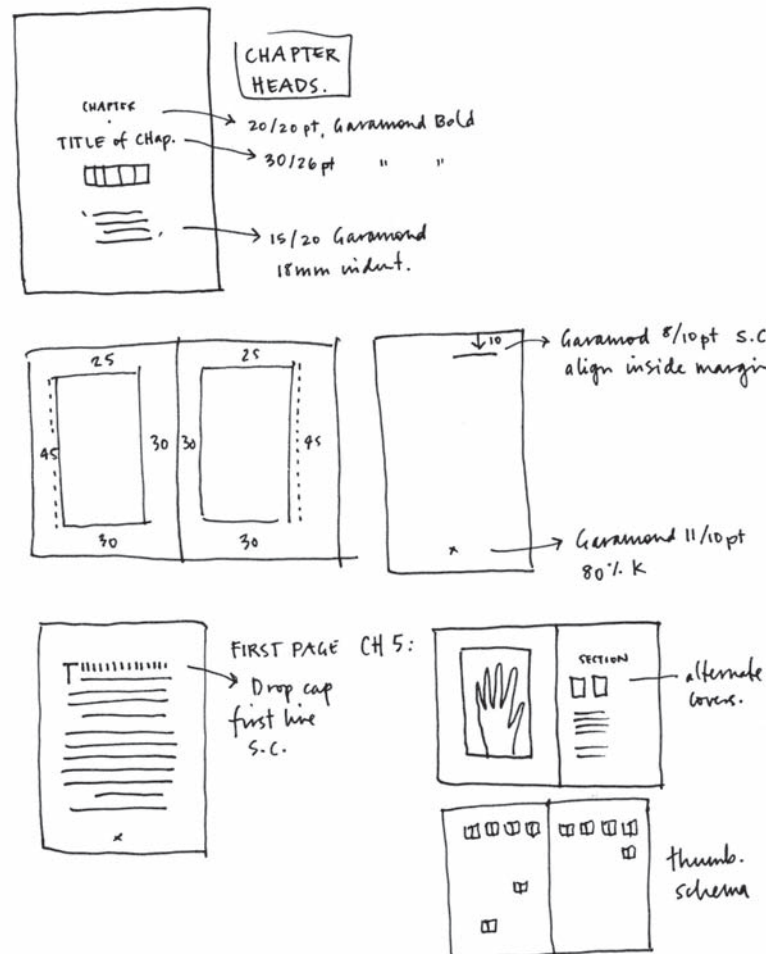 CHAPTER
HEADS.
CHAPTER
TITLE of CHap.
20/20 pt, Garamond Bold
30/26 pt " "
15/20 Garamond
18mm indent.
25
25
45
30
30
45
30
30
10
Garamod 8/10pt S.C
align inside margin
x
Garamond 11/10pt
80% K
T
x
FIRST PAGE
Drop cap
first line
S.C.
CH 5:
SECTION
alternate
covers.
thumb.
schema